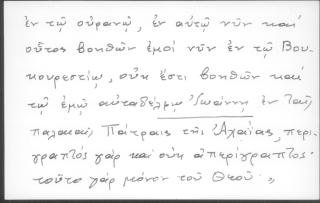 ἐν τῷ οὐρανῷ, ἐν αὐτῷ νῦν καὶ
οὗτος βοηθῶν ἐμοὶ νῦν ἐν τῷ Βου-
κουρεστίῳ, οὐκ ἔστι βοηθῶν καὶ
τῷ ἐμῷ αὐταδέλφῳ Ἰωάννῃ ἐν ταῖς
παλαιαῖς Πάτραις τῆς Ἀχαΐας, περι-
γραπτὸς γὰρ καὶ οὐκ ἀπερίγραπτος·
τοῦτο γὰρ μόνον τοῦ Θεοῦ.»